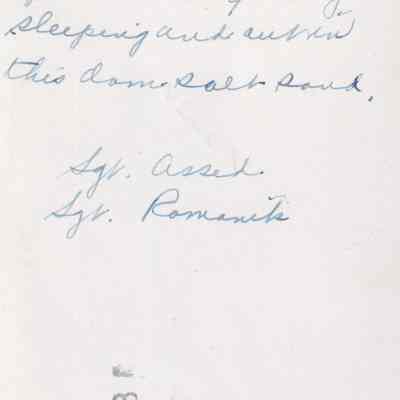 sleeping and
this dam salt sand.
Sgt. Assed.
Sgt. Romanik
8